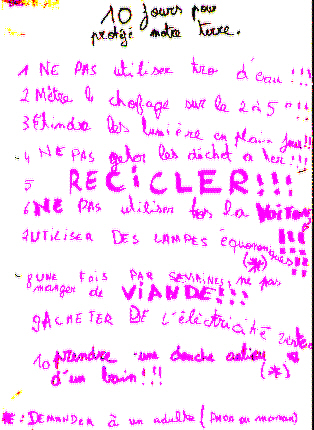 10 jours pour
protégé notre terre.
1 NE PAS utiliser tro d'eau!!!
2 Mètre le chofage sur la 2 à 5°!!!
3 Etindre les lumière en plain jour!!!
4 NE PAS les déchet a ter!!!
5 RECICLER!!!
6 NE PAS utiliser la VOITURE
!!!
7 UTILISER DES LAMPES équonomiques
(*)
8 UNE FOIS PAR SEMAINES, ne pas
manger de VIANDE!!!
9 ACHETER DE L'électricité
10 prendre une douche aulieu
d'un bain!!! (*)
*: DEMANDER à un adulte (PAPA ou maman)